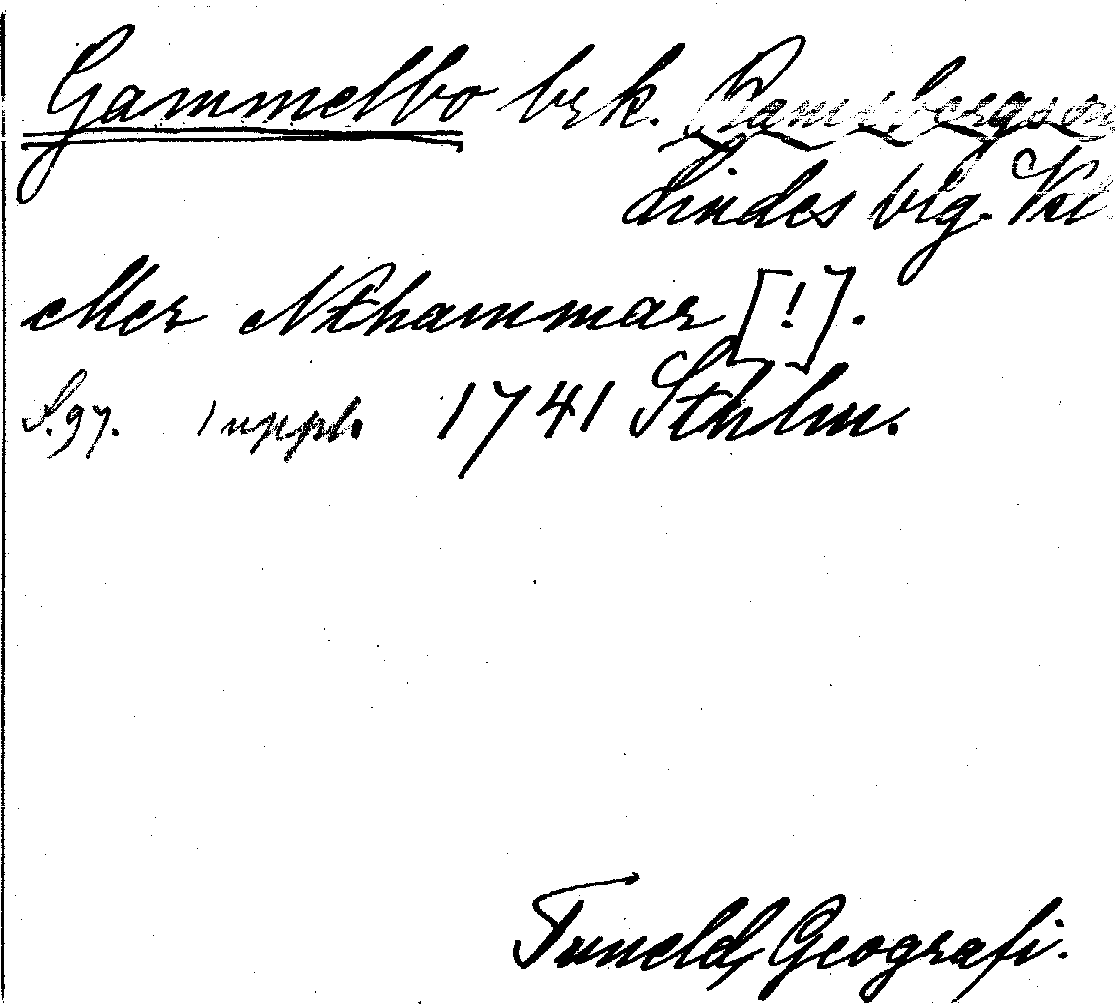 Gammelbo brk. Ramsbergs sn
Lindes blg. Vstl
eller Nthammar [!].
S. 97. 1 uppl. 1741 Sthlm.
Tuneld, Geografi.